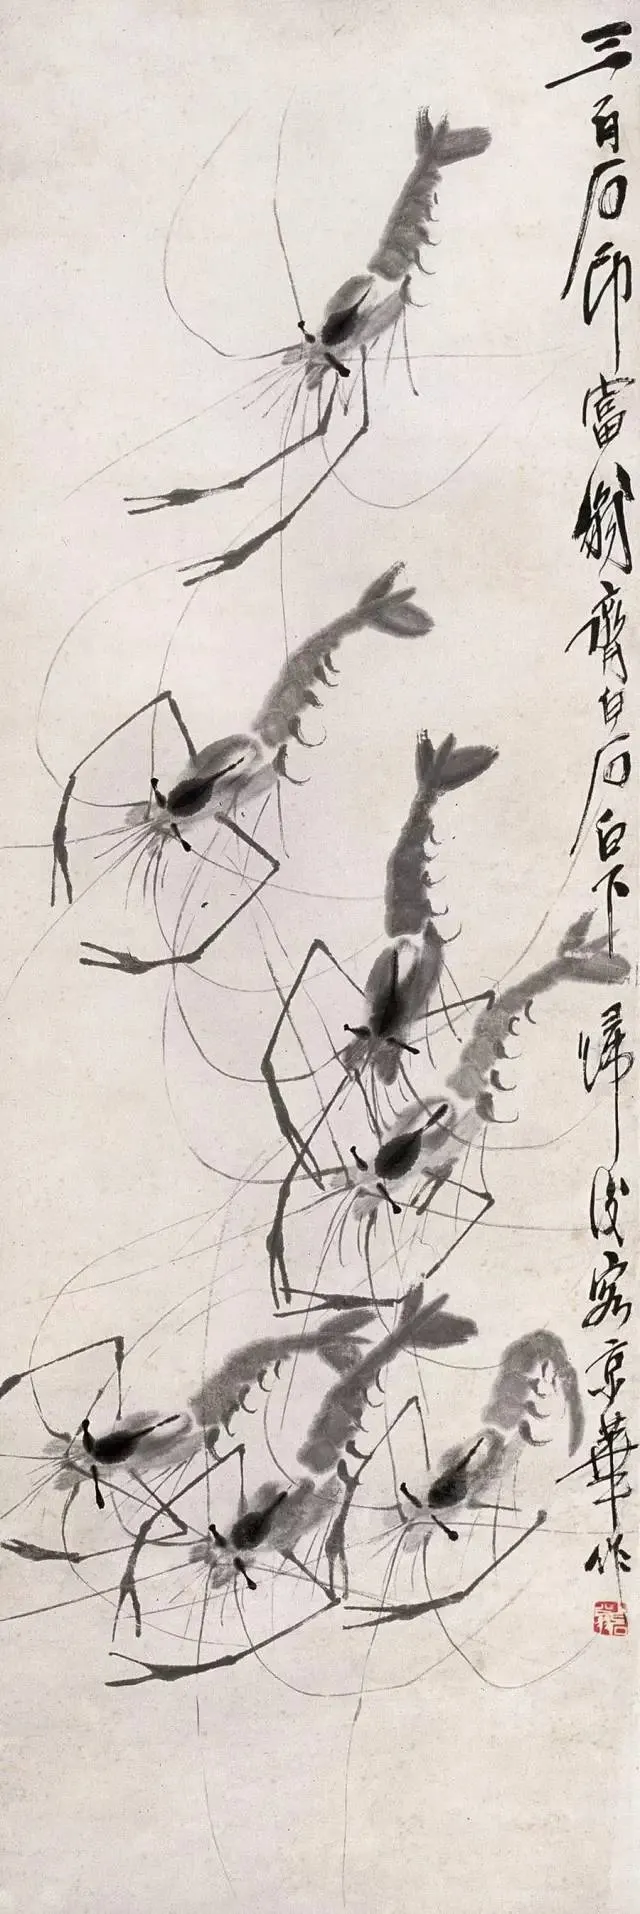 三百石印富翁齊白石白下歸後客京華作